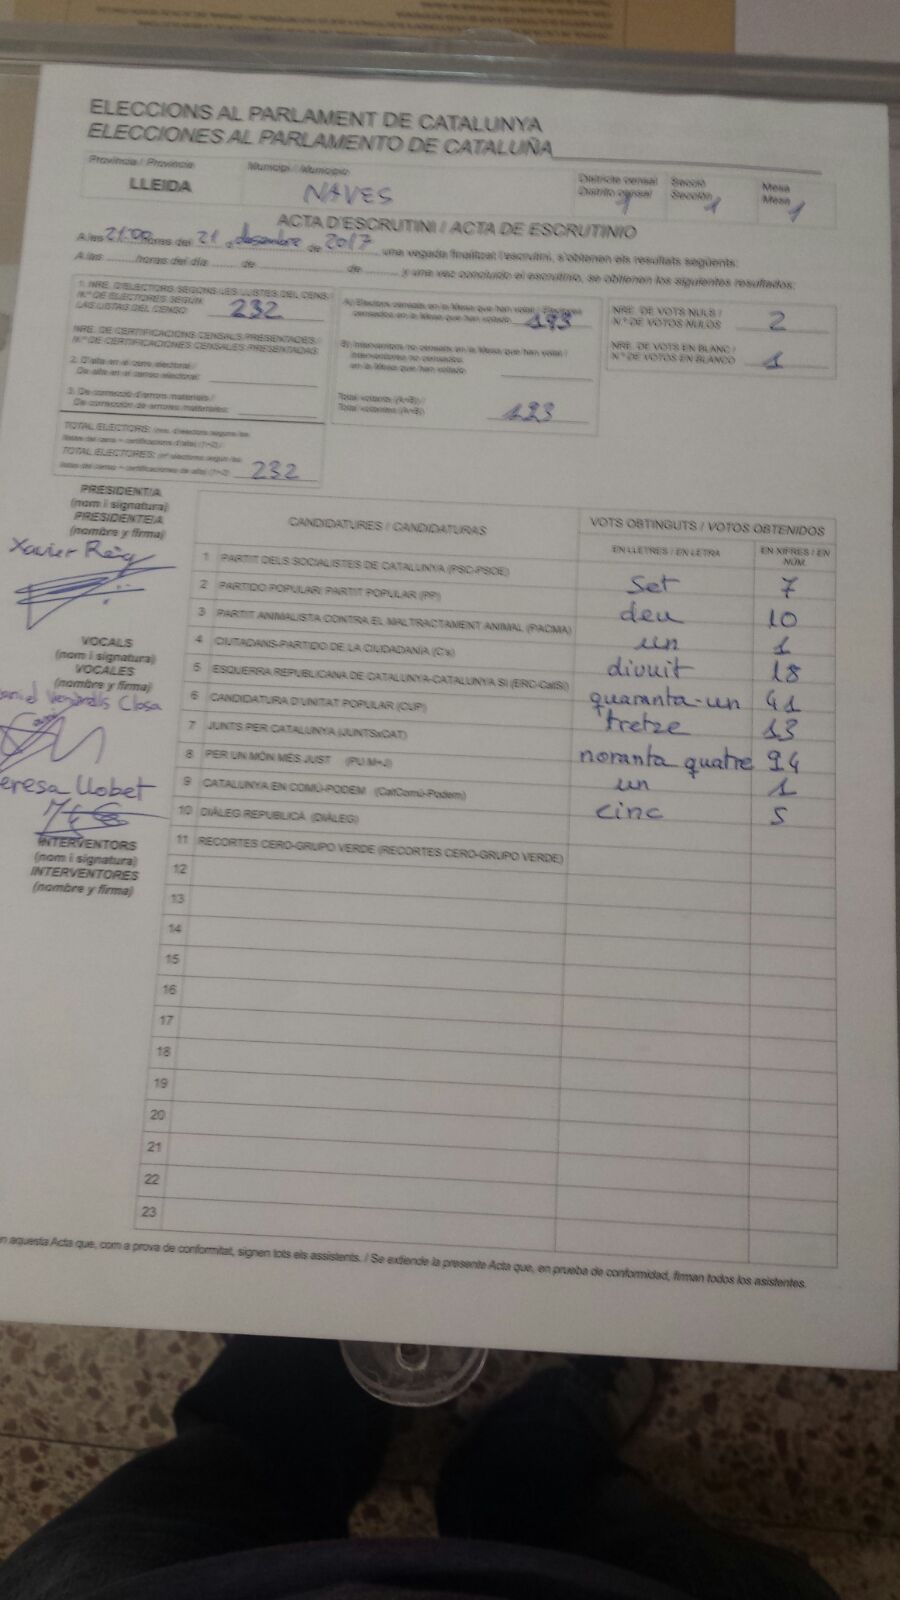 ELECCIONS AL PARLAMENT DE CATALUNYA
ELECCIONES AL PARLAMENTO DE CATALUÑA
Província / Provincia
LLEIDA
Municipi / Municipio
NAVES
Districte censal
Distrito censal
1
Secció
Sección
1
Mesa
Mesa
1
ACTA D'ESCRUTINI / ACTA DE ESCRUTINIO
A les 21:00 hores del 21 d desembre de 2017, una vegada finalitzat l'escrutini, s'obtenen els resultats següents:
A las ........ horas del día ....... de ................ de ........ y una vez concluido el escrutinio, se obtienen los siguientes resultados:
1. NRE. D'ELECTORS SEGONS LES LLISTES DEL CENS /
N.º DE ELECTORES SEGÚN
LAS LISTAS DEL CENSO 232
NRE. DE CERTIFICACIONS CENSALS PRESENTADES /
N.º DE CERTIFICACIONES CENSALES PRESENTADAS
2. D'alta en el cens electoral /
De alta en el censo electoral:
3. De correcció d'errors materials /
De corrección de errores materiales:
TOTAL ELECTORS: (nre. d'electors segons les
llistes del cens + certificacions d'alta) (1+2) /
TOTAL ELECTORES: (nº electores según las
listas del censo + certificaciones de alta) (1+2) 232
A) Electors censats en la Mesa que han votat / Electores
censados en la Mesa que han votado 193
B) Interventors no censats en la Mesa que han votat /
Interventores no censados
en la Mesa que han votado
Total votants (A+B) /
Total votantes (A+B) 193
NRE. DE VOTS NULS /
N.º DE VOTOS NULOS 2
NRE. DE VOTS EN BLANC /
N.º DE VOTOS EN BLANCO 1
PRESIDENT/A
(nom i signatura)
PRESIDENTE/A
(nombre y firma)
Xavier Reig
VOCALS
(nom i signatura)
VOCALES
(nombre y firma)
Closa
eresa Llobet
INTERVENTORS
(nom i signatura)
INTERVENTORES
(nombre y firma)
CANDIDATURES / CANDIDATURAS
VOTS OBTINGUTS / VOTOS OBTENIDOS
EN LLETRES / EN LETRA
EN XIFRES / EN NÚM.
1 PARTIT DELS SOCIALISTES DE CATALUNYA (PSC-PSOE) Set 7
2 PARTIDO POPULAR/ PARTIT POPULAR (PP) deu 10
3 PARTIT ANIMALISTA CONTRA EL MALTRACTAMENT ANIMAL (PACMA) un 1
4 CIUTADANS-PARTIDO DE LA CIUDADANÍA (C's) divuit 18
5 ESQUERRA REPUBLICANA DE CATALUNYA-CATALUNYA SÍ (ERC-CatSí) quaranta-un 41
6 CANDIDATURA D'UNITAT POPULAR (CUP) tretze 13
7 JUNTS PER CATALUNYA (JUNTSxCAT) noranta quatre 94
8 PER UN MÓN MÉS JUST (PUM+J) un 1
9 CATALUNYA EN COMÚ-PODEM (CatComú-Podem) cinc 5
10 DIÀLEG REPUBLICÀ (DIÀLEG)
11 RECORTES CERO-GRUPO VERDE (RECORTES CERO-GRUPO VERDE)
12
13
14
15
16
17
18
19
20
21
22
23
n aquesta Acta que, com a prova de conformitat, signen tots els assistents. / Se extiende la presente Acta que, en prueba de conformidad, firman todos los asistentes.